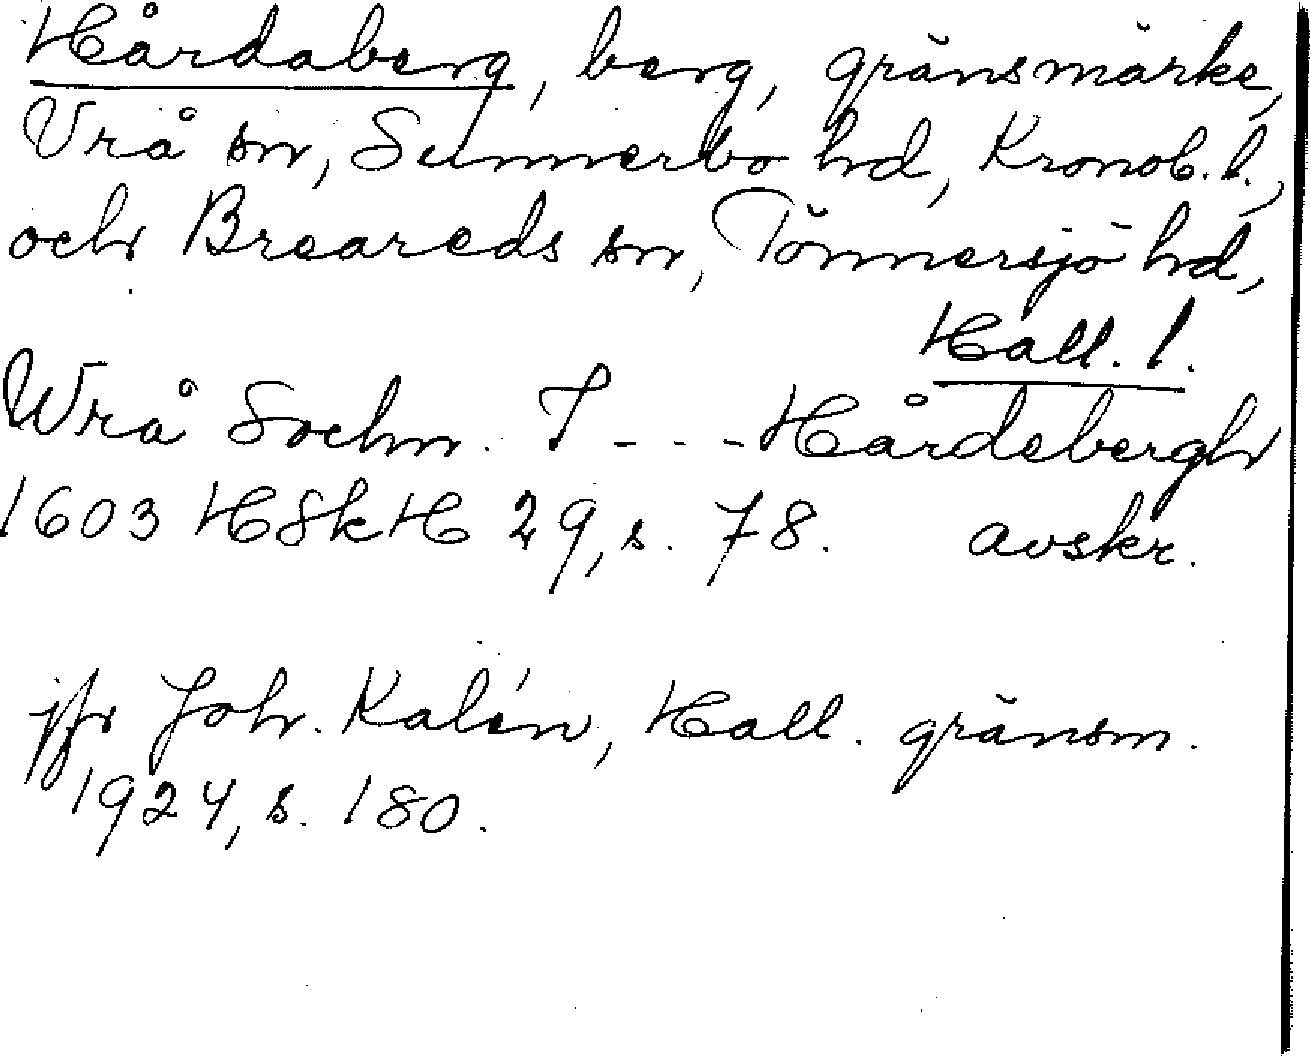 Hårdaberg, berg, gränsmärke,
Vrå sn, Sunnerbo hd, Kronob. l.,
och Breareds sn, Tönnersjö hd,
Hall. l.
Wrå Sochn. I - - - Hårdebergh
1603 HSkH 29, s. 78. avskr.
jfr Joh. Kalén, Hall. gränsm.
1924, s. 180.